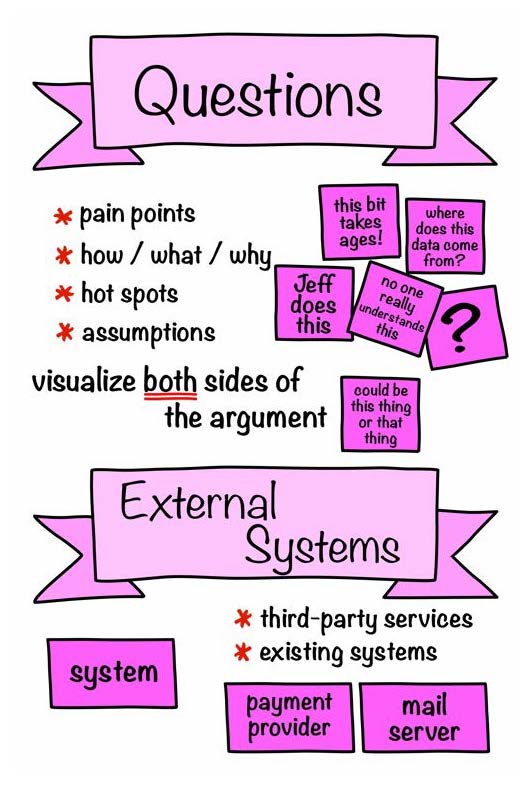 Questions
pain points
how / what / why
hot spots
assumptions
this bit
takes
ages!
where
does this
data come
from?
Jeff
does
this
no one
really
understands
this
?
visualize both sides of
the argument
could be
this thing
or that
thing
External
Systems
third-party services
existing systems
system
payment
provider
mail
server